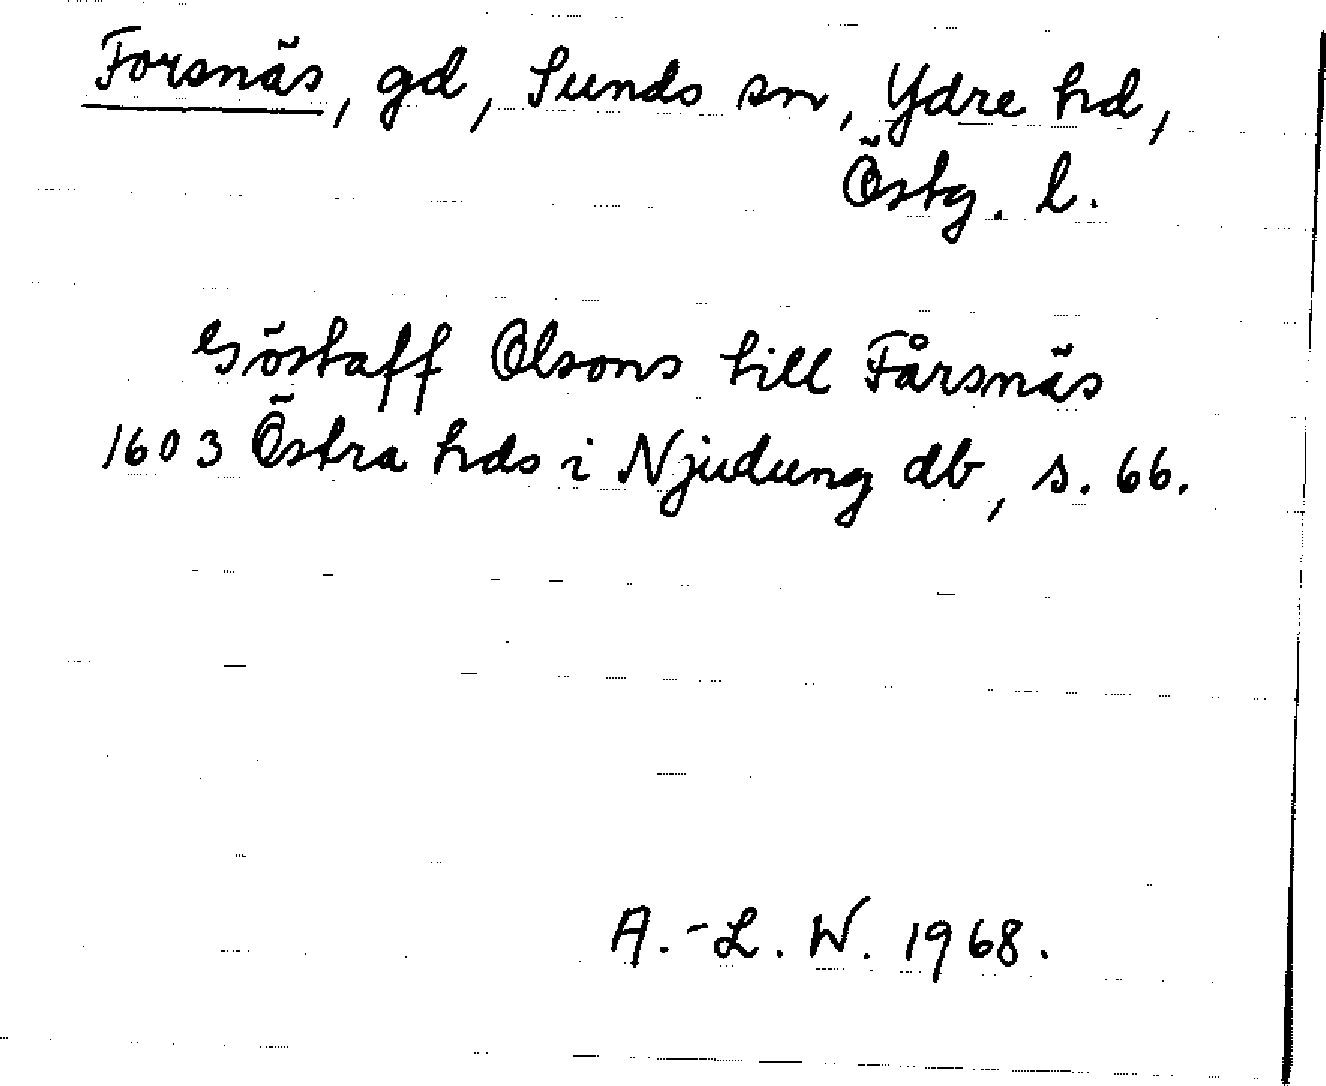 Forsnäs, gd, Sunds sn, Ydre hd,
Östg. l.
Göstaff Olsons till Fårsnäs
1603 Östra hds i Njudung db, s. 66.
A.-L. W. 1968.